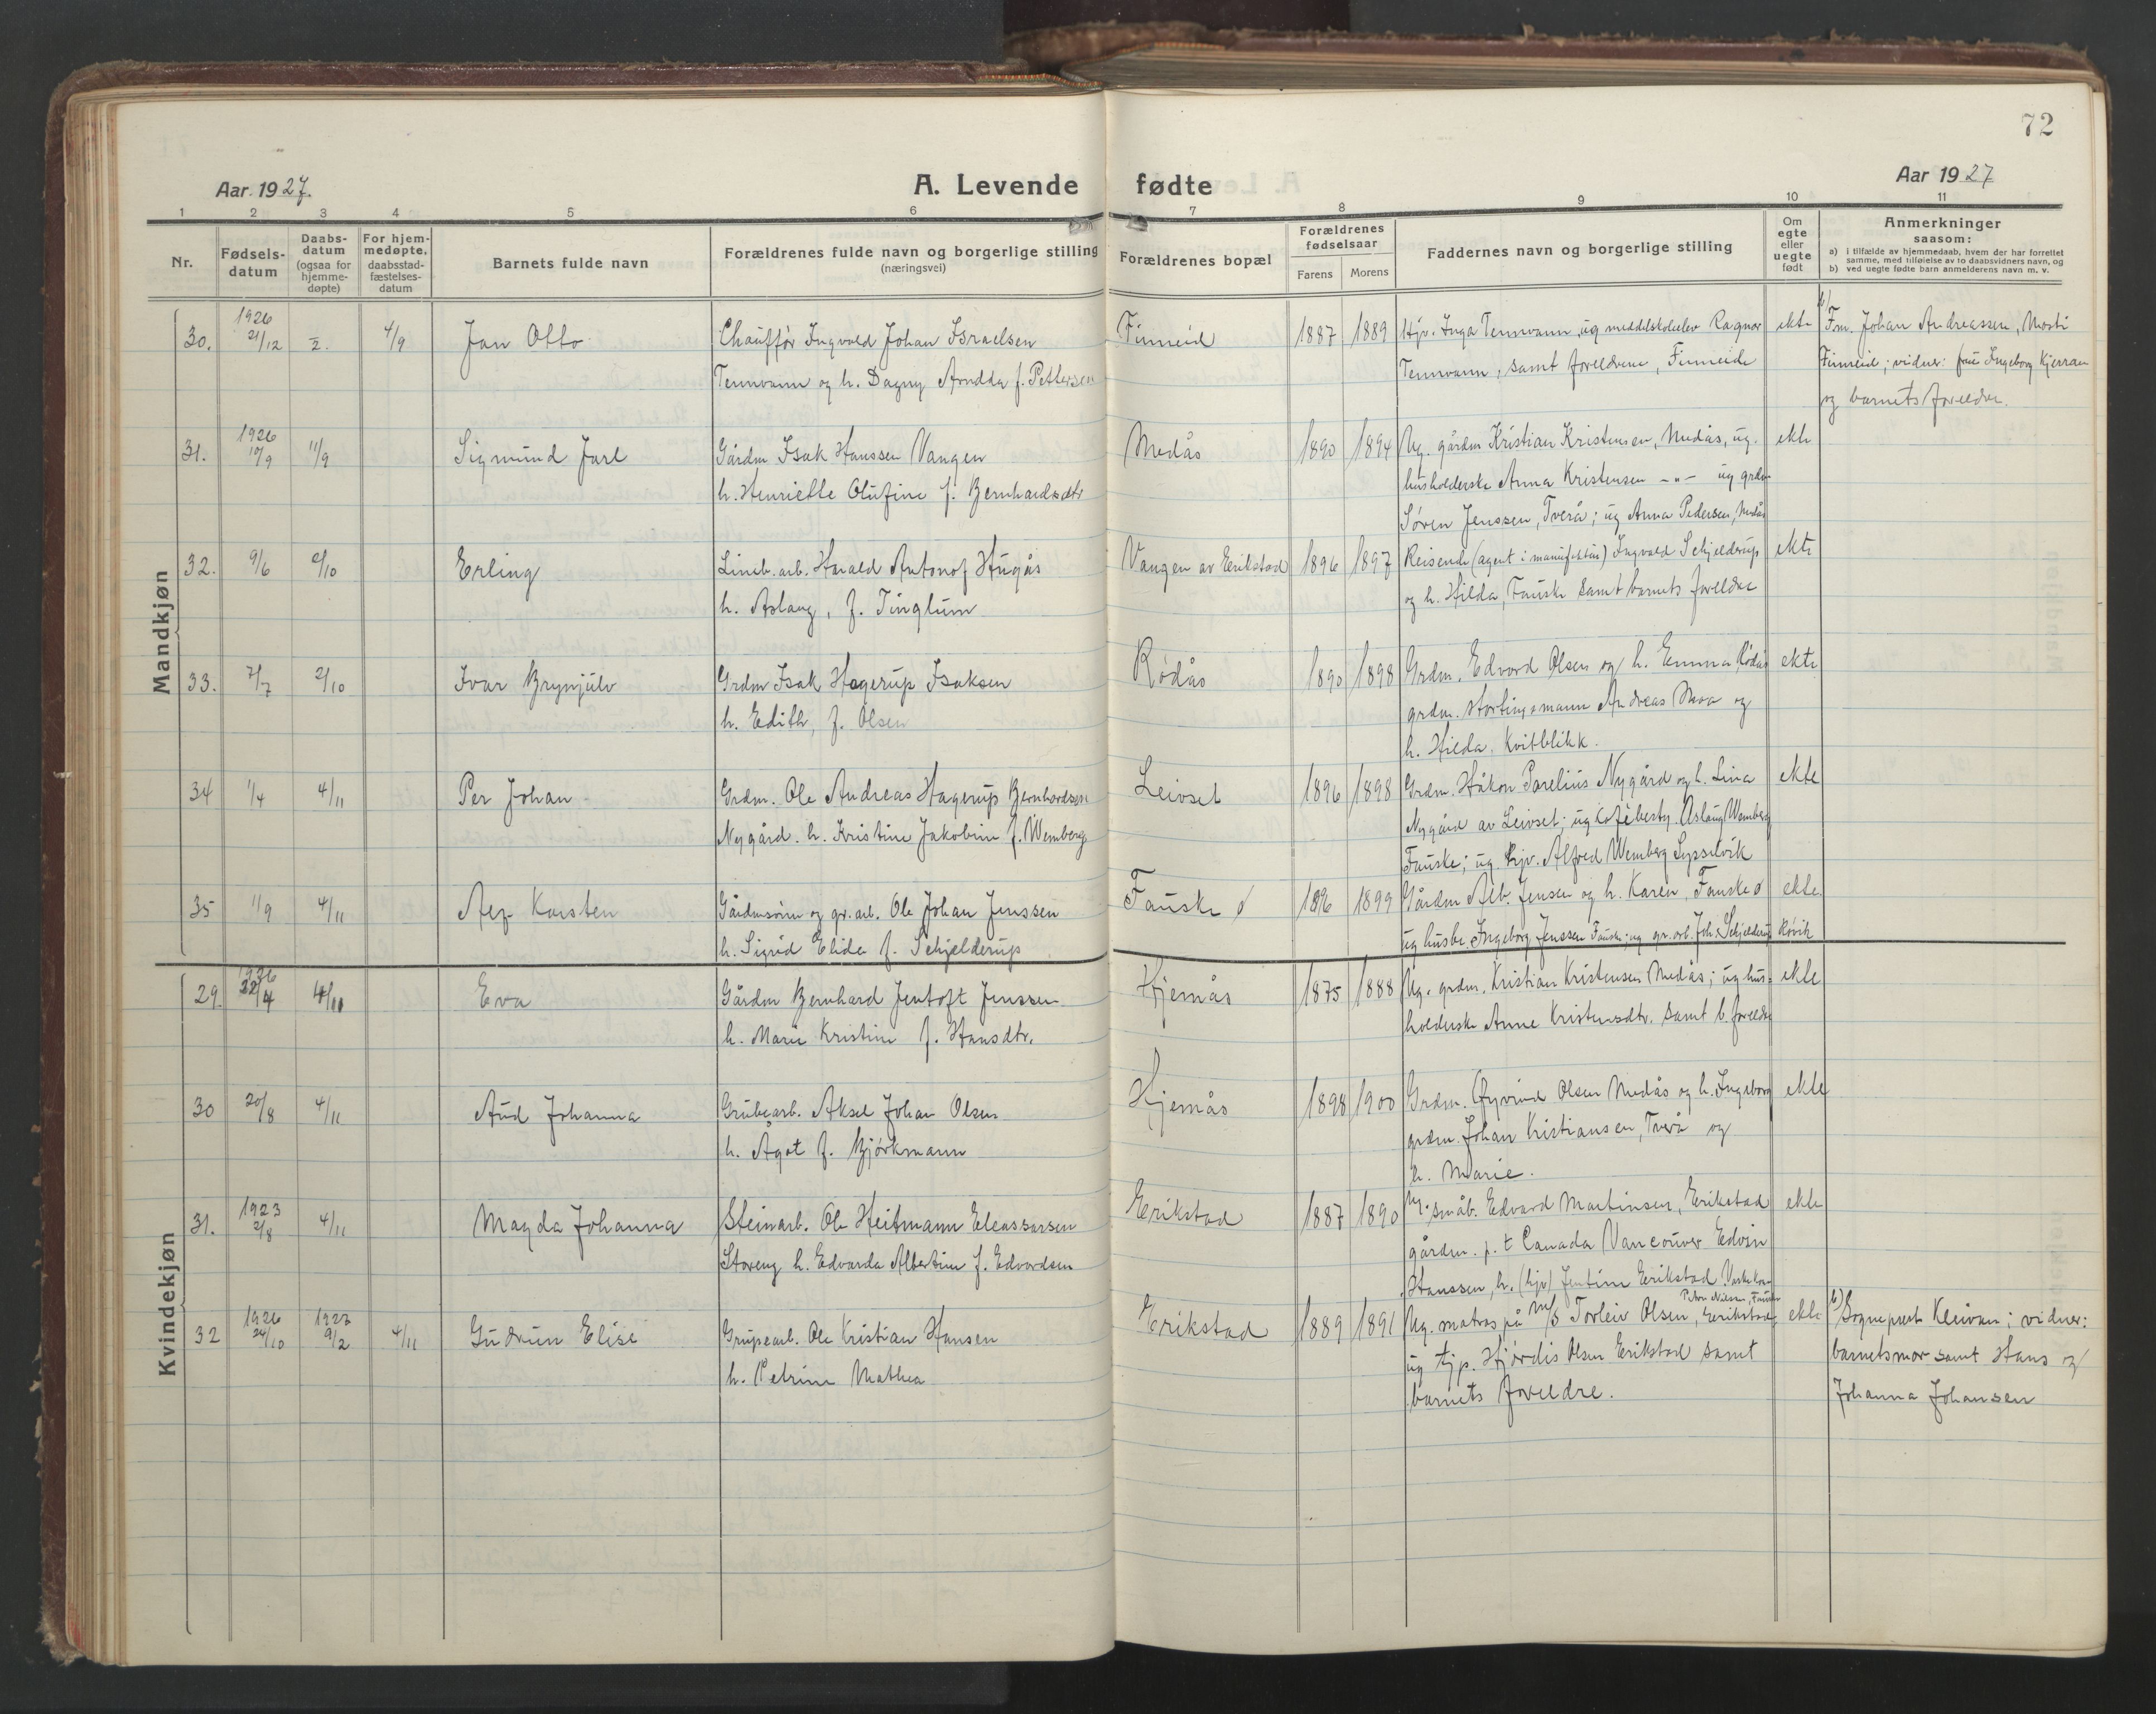 72
Aar 1927. A. Levende fødte Aar 1927
1 2 3 4 5 6 7 8 9 10 11
Nr.
Fødsels-
datum
Daabs-
datum
(ogsaa for
hjemme-
døpte)
For hjem-
medøpte,
daabsstad-
fæstelses-
datum
Barnets fulde navn
Forældrenes fulde navn og borgerlige stilling
(næringsvei)
Forældrenes bopæl
Forældrenes
fødselsaar
Farens Morens
Faddernes navn og borgerlige stilling
Om
egte
eller
uegte
født
Anmerkninger
saasom:
a) i tilfælde av hjemmedaab, hvem der har forrettet
samme, med tilføielse av to daabsvidners navn, og
b) ved uegte fødte barn anmelderens navn m. v.
Mandkjøn
30. 1926 21/12 4/9 Jan Otto
Chauffør Ingvald Johan Israelsen
Tennvann og h. Dagny f. Pettersen
Finneid 1887 1889
Hjv. Inga Tennvann, ug middelskoleelev Ragnar
Tennvann, samt foreldrene, Finneide
ekte
Fm. Johan Andreassen, Mosti
Finneid; vidner: frue Ingeborg Kjerran
og barnets foreldre.
31. 1926 10/9 11/9 Sigmund Jarl
Gårdm Isak Hanssen Vangen
h. Henriette Olufine f. Bernhardsdtr
Medås 1890 1894
Ug. gårdm Kristian Kristensen, Medås, ug.
husholderske Anna Kristensen -"- ug grdm
Søren Jenssen, Tverå; ug Anna Pedersen, Medås
ekte
32. 9/6 2/10 Erling
Lineb. arb. Harald Antonof Hugås
h. Aslaug, f. Tinglum
Vangen av Erikstad 1896 1897
Reisende (agent i manufaktur) Ingvald Schjelderup
og h. Hilda, Fauske samt barnets foreldre
ekte
33. 7/7 2/10 Ivar Brynjulv
Grdm Isak Hagerup Isaksen
h. Edith, f. Olsen
Rødås 1890 1898
Grdm. Edvard Olsen og h. Emma Rødås
grdm. stortingsmann Andreas Moa og
h. Hilda, Kvitblikk.
ekte
34 1/4 4/11 Per Johan
Grdm. Ole Andreas Hagerup Bernhardsen
Nygård. h. Kristine Jakobine f. Wemberg
Leivset 1896 1898
Grdm. Håkon Parelius Nygård og h. Lina
Nygård av Leivset; ug kafèbesty. Aslaug Wemberg
Fauske; ug. hjv. Alfred Wemberg
ekte
35 1/9 4/11 Karsten
Gårdmsønn og gr. arb. Ole Johan Jenssen
h. Sigrid Elida f. Schjelderup
Fauske ø 1896 1899
Gårdm Alb. Jensen og h. Karen, Fauske ø
ug husbe. Ingeborg Jenssen Fauske; ug gr. arb. Joh. Schjelderup Røvik
ekte
Kvindekjøn
29. 1926 22/4 4/11 Eva
Gårdm Bernhard Jentoft Jenssen
h. Marie Kristine f. Hansdtr.
Hjemås 1875 1888
Ug. grdm. Kristian Kristensen Medås; ug hus-
holderske Anne Kristensdtr. samt b. foreldre
ekte
30 20/8 4/11 Aud Johanna
Grubearb. Aksel Johan Olsen
h. Ågot f. Bjørkmann
Hjemås 1898 1900
Grdm. Øyvind Olsen Medås og h. Ingeborg
grdm. Johan Kristiansen, Tverå og
h. Marie.
ekte
31. 1923 2/8 4/11 Magda Johanna
Steinarb. Ole Heitmann Eleassarsen
Storeng h. Edvarda Albertine f. Edvardsen
Erikstad 1887 1890
småb. Edvard Martinsen, Erikstad
gårdm. p. t Canada Vancouver Edvin
Hanssen, h. (hjv) Jentine Erikstad
Petra Nilsen, Fauske
ekte
32 1926 24/10 1927 9/2 4/11 Gudrun Elise
Grupearb. Ole Kristian Hansen
h. Petrine Mathea
Erikstad 1889 1891
Ug. matros på M/S Torleiv Olsen, Erikstad,
ug tjp. Hjørdis Olsen Erikstad samt
barnets foreldre.
ekte
Sogneprest Kleivan; vidner:
barnets mor samt Hans og
Johanna Johansen